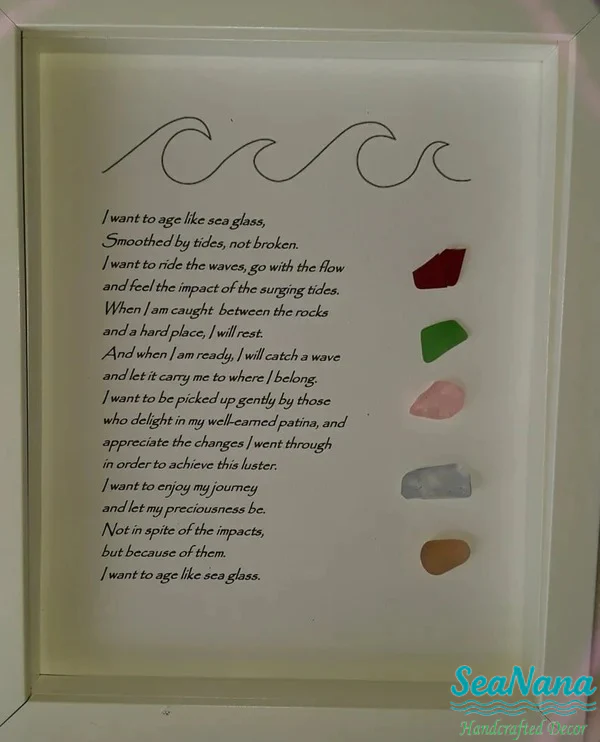 I want to age like sea glass,
Smoothed by tides, not broken.
I want to ride the waves, go with the flow
and feel the impact of the surging tides.
When I am caught between the rocks
and a hard place, I will rest.
And when I am ready, I will catch a wave
and let it carry me to where I belong.
I want to be picked up gently by those
who delight in my well-earned patina, and
appreciate the changes I went through
in order to achieve this luster.
I want to enjoy my journey
and let my preciousness be.
Not in spite of the impacts,
but because of them.
I want to age like sea glass.
SeaNana
Handcrafted Decor